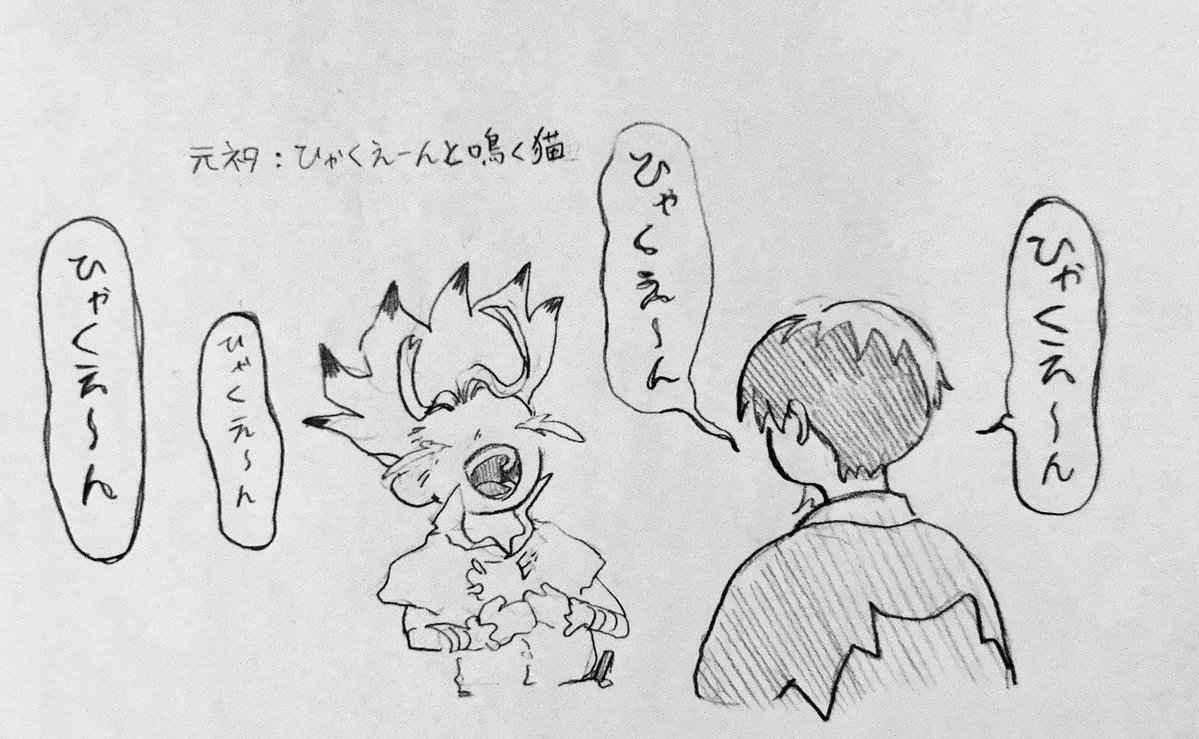 元ネタ：ひゃくえーんと鳴く猫
ひゃくえ〜ん
ひゃくえ〜ん
ひゃくえ〜ん
ひゃくえ〜ん